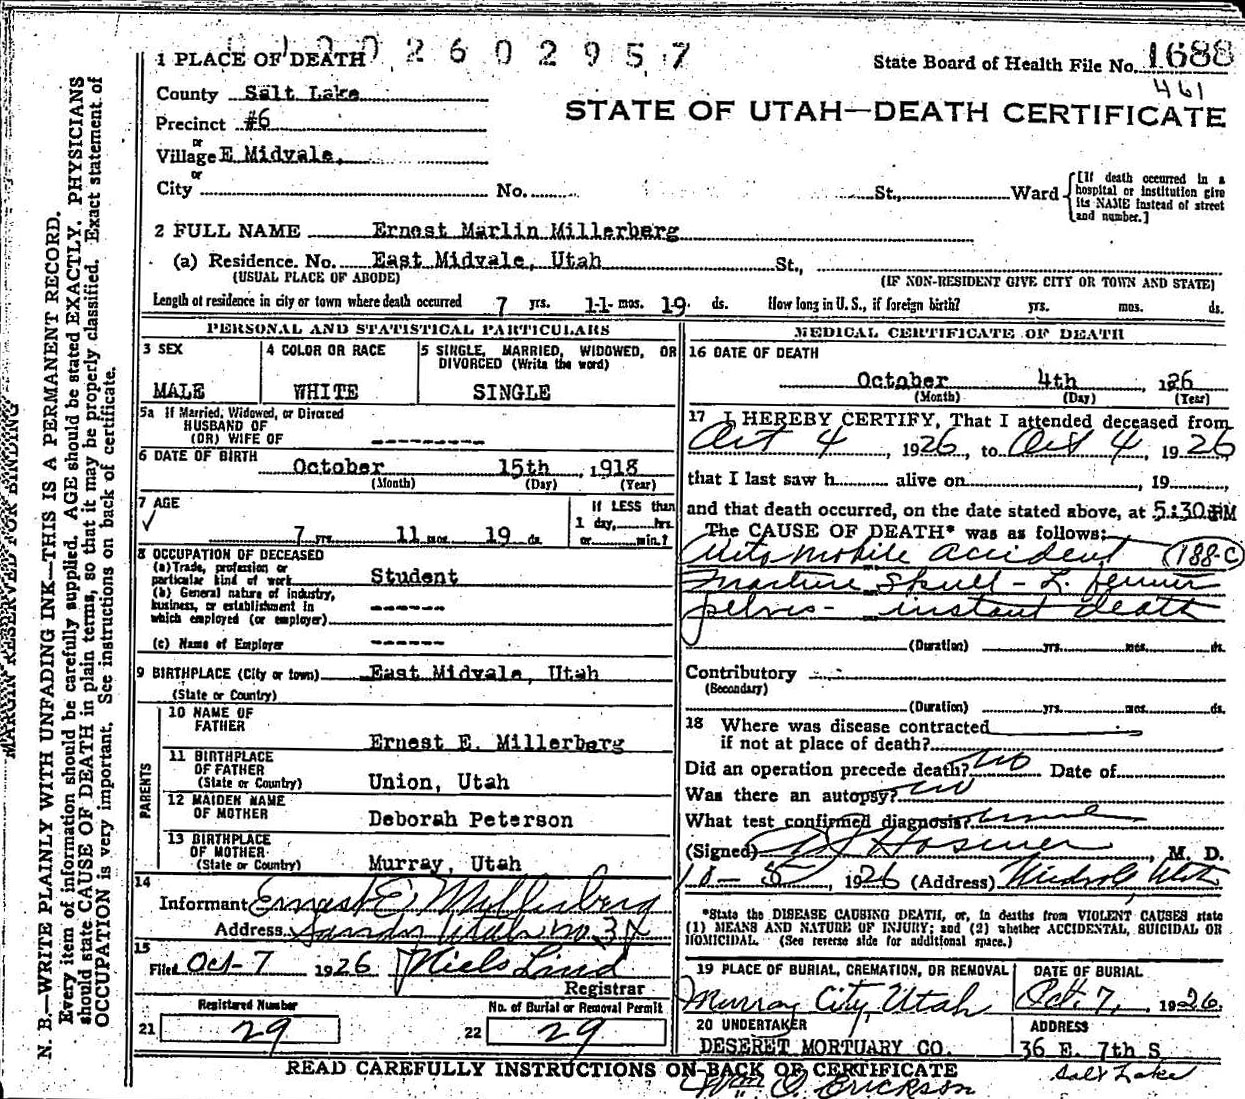 1 PLACE OF DEATH
2602957
State Board of Health File No. 1688
461
County Salt Lake
STATE OF UTAH—DEATH CERTIFICATE
Precinct #6
or
Village E Midvale,
or
City No. St., Ward
[If death occurred in a hospital or institution give its NAME instead of street and number.]
2 FULL NAME Ernest Marlin Millerberg
(a) Residence. No. East Midvale, Utah St.,
(USUAL PLACE OF ABODE) (IF NON-RESIDENT GIVE CITY OR TOWN AND STATE)
Length of residence in city or town where death occurred 7 yrs. 11 mos. 19 ds. How long in U. S., if foreign birth? yrs. mos. ds.
PERSONAL AND STATISTICAL PARTICULARS
3 SEX
MALE
4 COLOR OR RACE
WHITE
5 SINGLE, MARRIED, WIDOWED, OR
DIVORCED (Write the word)
SINGLE
5a If Married, Widowed, or Divorced
HUSBAND OF
(OR) WIFE OF
6 DATE OF BIRTH
October 15th, 1918
(Month) (Day) (Year)
7 AGE
7 yrs. 11 mos. 19 ds.
If LESS than
1 day, hrs.
or min.?
8 OCCUPATION OF DECEASED
(a) Trade, profession or
particular kind of work Student
(b) General nature of industry,
business, or establishment in
which employed (or employer)
(c) Name of Employer
9 BIRTHPLACE (City or town) East Midvale, Utah
(State or Country)
PARENTS
10 NAME OF
FATHER
Ernest E. Millerberg
11 BIRTHPLACE
OF FATHER
(State or Country) Union, Utah
12 MAIDEN NAME
OF MOTHER Deborah Peterson
13 BIRTHPLACE
OF MOTHER
(State or Country) Murray, Utah
14
Informant Ernest E. Millerberg
Address Sandy Utah no. 3
15
Filed Oct-7 1926 Niels Lind
Registrar
Registered Number
21 29
No. of Burial or Removal Permit
22 29
MEDICAL CERTIFICATE OF DEATH
16 DATE OF DEATH
October 4th, 126
(Month) (Day) (Year)
17 I HEREBY CERTIFY, That I attended deceased from
Oct 4, 1926, to Oct 4, 1926
that I last saw h alive on , 19
and that death occurred, on the date stated above, at 5:30 PM
The CAUSE OF DEATH* was as follows:
Automobile accident 188-c
Fracture skull - L. femur
pelvis - instant death
(Duration) yrs. mos. ds.
Contributory
(Secondary)
(Duration) yrs. mos. ds.
18 Where was disease contracted
if not at place of death?
Did an operation precede death? no Date of
Was there an autopsy? no
What test confirmed diagnosis?
(Signed) Hosmer, M. D.
10-5, 1926 (Address) Midvale Utah
*State the DISEASE CAUSING DEATH, or, in deaths from VIOLENT CAUSES state
(1) MEANS AND NATURE OF INJURY; and (2) whether ACCIDENTAL, SUICIDAL OR
HOMICIDAL. (See reverse side for additional space.)
19 PLACE OF BURIAL, CREMATION, OR REMOVAL
Murray City, Utah
DATE OF BURIAL
Oct. 7, 1926.
20 UNDERTAKER
DESERET MORTUARY CO.
ADDRESS
36 E. 7th S
Salt Lake
READ CAREFULLY INSTRUCTIONS ON BACK OF CERTIFICATE
Wm O. Erickson
MARGIN RESERVED FOR BINDING
N. B.—WRITE PLAINLY WITH UNFADING INK—THIS IS A PERMANENT RECORD.
Every item of information should be carefully supplied. AGE should be stated EXACTLY. PHYSICIANS
should state CAUSE OF DEATH in plain terms, so that it may be properly classified. Exact statement of
OCCUPATION is very important. See instructions on back of certificate.